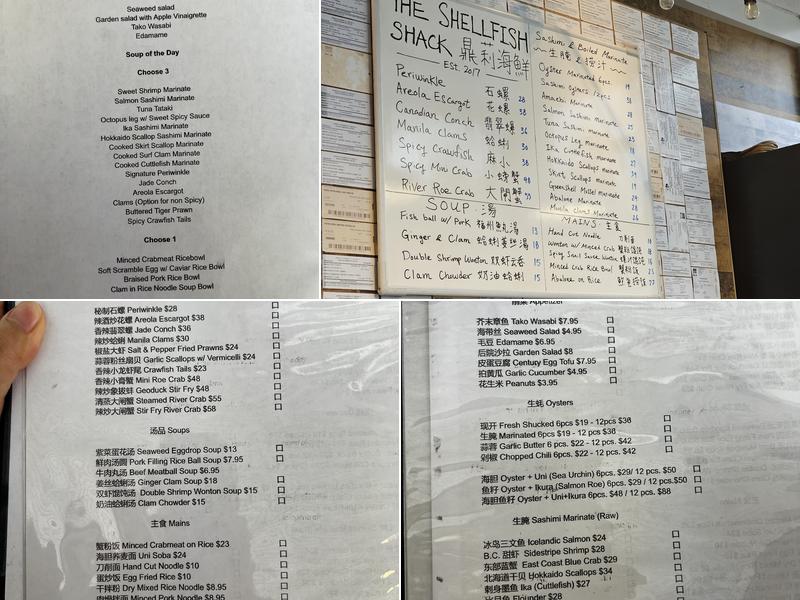 Seaweed salad
Garden salad with Apple Vinaigrette
Tako Wasabi
Edamame
Soup of the Day
Choose 3
Sweet Shrimp Marinate
Salmon Sashimi Marinate
Tuna Tataki
Octopus leg w/ Sweet Spicy Sauce
Ika Sashimi Marinate
Hokkaido Scallop Sashimi Marinate
Cooked Skirt Scallop Marinate
Cooked Surf Clam Marinate
Cooked Cuttlefish Marinate
Signature Periwinkle
Jade Conch
Areola Escargot
Clams (Option for non Spicy)
Buttered Tiger Prawn
Spicy Crawfish Tails
Choose 1
Minced Crabmeat Ricebowl
Soft Scramble Egg w/ Caviar Rice Bowl
Braised Pork Rice Bowl
Clam in Rice Noodle Soup Bowl
THE SHELLFISH
SHACK 鼎莉海鮮
EST. 2017
Periwinkle 石螺 28
Areola Escargot 花螺 38
Canadian Conch 翡翠螺 36
Manila Clams 蛤蜊 30
Spicy Crawfish 麻小 38
Spicy Mini Crab 小螃蟹 48
River Roe Crab 大閘蟹
SOUP 湯
Fish ball w/ Pork 福州魚丸湯 13
Ginger & Clam 蛤蜊姜丝湯 18
Double Shrimp Wonton 双虾云吞 15
Clam Chowder 奶油蛤蜊 15
Sashimi & Boiled Marinate
~生腌 & 捞汁~
Oyster Marinated 6pcs 19
Sashimi Oysters 12pcs
Amaebi Marinate
Salmon Sashimi marinate
Tuna Sashimi marinate
Octopus Leg marinate
Ika Cuttlefish marinate
Hokkaido Scallops marinate
Skirt Scallops marinate
Greenshell Mussel Marinate
Abalone Marinate
Manila Clams Marinate 26
MAINS 主食
Hand Cut Noodle 刀削面
Wonton w/ Minced Crab
Spicy Snail Sauce Wonton
Minced Crab Rice Bowl 蟹粉飯
Abalone on Rice 鮑魚撈飯
秘制石螺 Periwinkle $28
辣酒炒花螺 Areola Escargot $38
香辣翡翠螺 Jade Conch $36
辣炒蛤蜊 Manila Clams $30
椒盐大虾 Salt & Pepper Fried Prawns $24
蒜蓉粉丝扇贝 Garlic Scallops w/ Vermicelli $24
香辣小龙虾尾 Crawfish Tails $23
香辣小膏蟹 Mini Roe Crab $48
辣炒象拔蚌 Geoduck Stir Fry $48
清蒸大闸蟹 Steamed River Crab $55
辣炒大闸蟹 Stir Fry River Crab $58
汤品 Soups
紫菜蛋花汤 Seaweed Eggdrop Soup $13
鲜肉汤圆 Pork Filling Rice Ball Soup $7.95
牛肉丸汤 Beef Meatball Soup $6.95
姜丝蛤蜊汤 Ginger Clam Soup $18
双虾馄饨汤 Double Shrimp Wonton Soup $15
奶油蛤蜊汤 Clam Chowder $15
主食 Mains
蟹粉饭 Minced Crabmeat on Rice $23
海胆荞麦面 Uni Soba $24
刀削面 Hand Cut Noodle $10
蛋炒饭 Egg Fried Rice $10
干拌粉 Dry Mixed Rice Noodle $8.95
肉燥拌粉 Minced Pork Noodle $8.95
Appetizer
芥末章鱼 Tako Wasabi $7.95
海带丝 Seaweed Salad $4.95
毛豆 Edamame $6.95
后院沙拉 Garden Salad $8
皮蛋豆腐 Century Egg Tofu $7.95
拍黄瓜 Garlic Cucumber $4.95
花生米 Peanuts $3.95
生蚝 Oysters
现开 Fresh Shucked 6pcs $19 - 12pcs $36
生腌 Marinated 6pcs $19 - 12 pcs $36
蒜蓉 Garlic Butter 6 pcs. $22 - 12 pcs. $42
剁椒 Chopped Chili 6pcs. $22 - 12 pcs. $42
海胆 Oyster + Uni (Sea Urchin) 6pcs. $29/ 12 pcs. $50
鱼籽 Oyster + Ikura (Salmon Roe) 6pcs. $29 / 12 pcs.$50
海胆鱼籽 Oyster + Uni+Ikura 6pcs. $48 / 12 pcs. $88
生腌 Sashimi Marinate (Raw)
冰岛三文鱼 Icelandic Salmon $24
B.C. 甜虾 Sidestripe Shrimp $28
东部蓝蟹 East Coast Blue Crab $29
北海道干贝 Hokkaido Scallops $34
刺身墨鱼 Ika (Cuttlefish) $27
比目鱼 Flounder $28